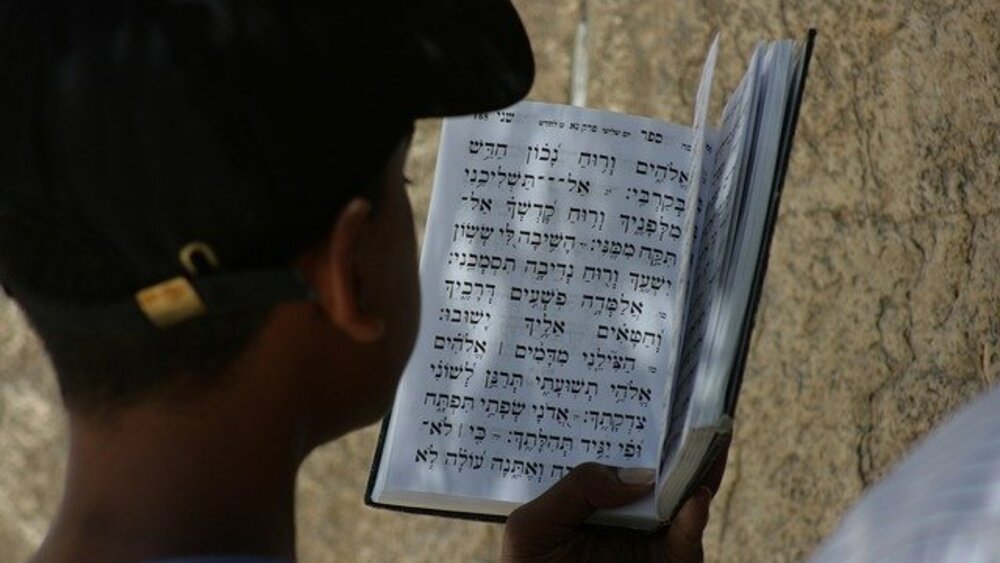 ספר יום שלישי פרק נא ט לחדש שני 163
אֱלֹהִים וְר֥וּחַ נָ֝כ֗וֹן חַדֵּ֥שׁ
בְּקִרְבִּֽי׃ אַל־־־תַּשְׁלִיכֵ֥נִי
מִלְּפָנֶ֑יךָ וְר֥וּחַ קָ֝דְשְׁךָ֗ אַל־
תִּקַּ֥ח מִמֶּֽנִּי׃ הָשִׁ֣יבָה לִּ֭י שְׂשׂ֣וֹן
יִשְׁעֶ֑ךָ וְר֖וּחַ נְדִיבָ֣ה תִסְמְכֵֽנִי׃
אֲלַמְּדָ֣ה פֹשְׁעִ֣ים דְּרָכֶ֑יךָ
וְ֝חַטָּאִ֗ים אֵלֶ֥יךָ יָשֽׁוּבוּ׃
הַצִּ֘ילֵ֤נִי מִדָּמִ֨ים ׀ אֱֽלֹהִ֗ים
אֱלֹהֵ֥י תְשׁוּעָתִ֑י תְּרַנֵּ֥ן לְ֝שׁוֹנִ֗י
צִדְקָתֶֽךָ׃ אֲ֭דֹנָי שְׂפָתַ֣י תִּפְתָּ֑ח
וּ֝פִ֗י יַגִּ֥יד תְּהִלָּתֶֽךָ׃ כִּ֤י ׀ לֹא־
וְאֶתֵּ֑נָה ע֝וֹלָ֗ה לֹ֣א